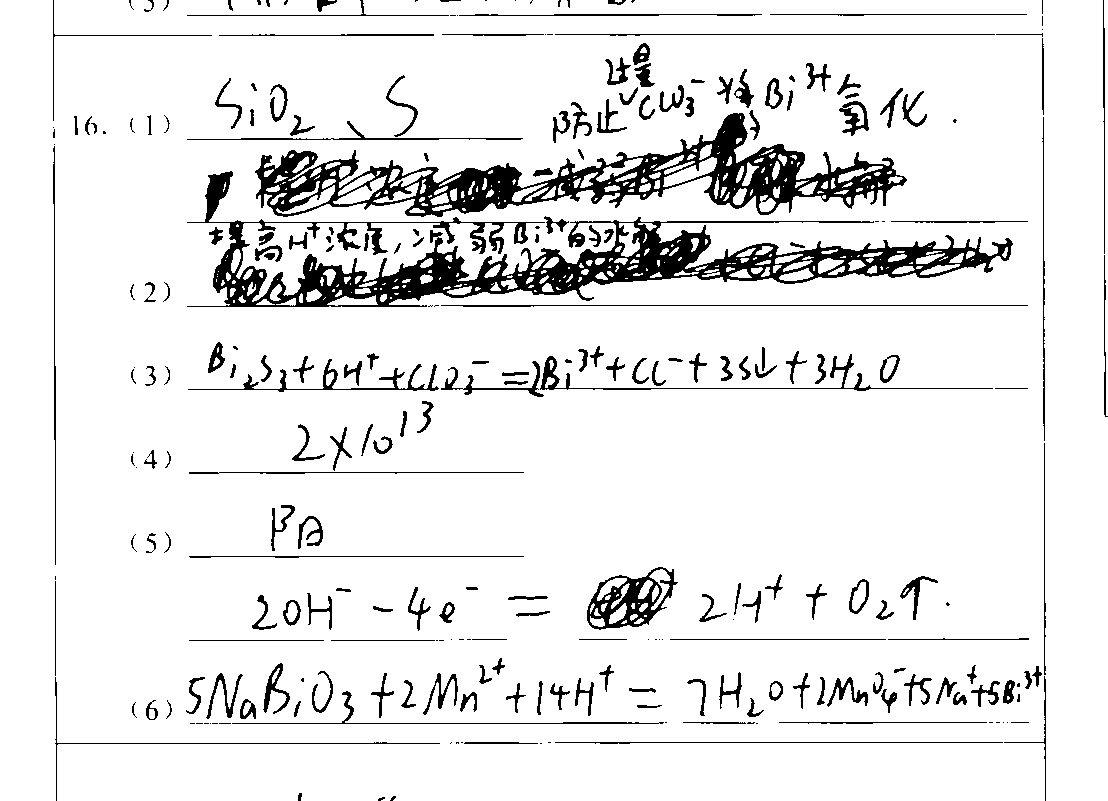 (5)
16. (1) SiO₂、S 防止过量ClO₃⁻将Bi³⁺氧化.
提高H⁺浓度,减弱Bi³⁺的水解
(2)
(3) Bi₂S₃+6H⁺+ClO₃⁻=2Bi³⁺+Cl⁻+3S↓+3H₂O
(4) 2×10¹³
(5) 阴
2OH⁻-4e⁻= 2H⁺+O₂↑.
(6) 5NaBiO₃+2Mn²⁺+14H⁺=7H₂O+2MnO₄⁻+5Na⁺+5Bi³⁺